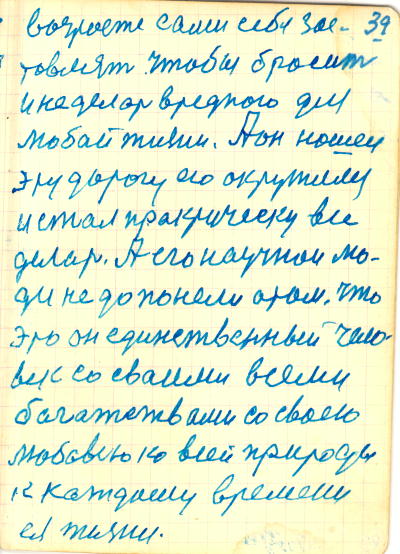 возросте сами себя зос- 39
товлят чтобы бросит
и неделар вредного для
любай жизни. А он нашел
эту дорогу его окружили
и стал практическу все
делар. А его научнои лю-
ди не допонели отом. что
это он единственный чело-
век со сваими всеми
богатствами со своею
любовею ко всей природи
к каждому времени
ея жизни.